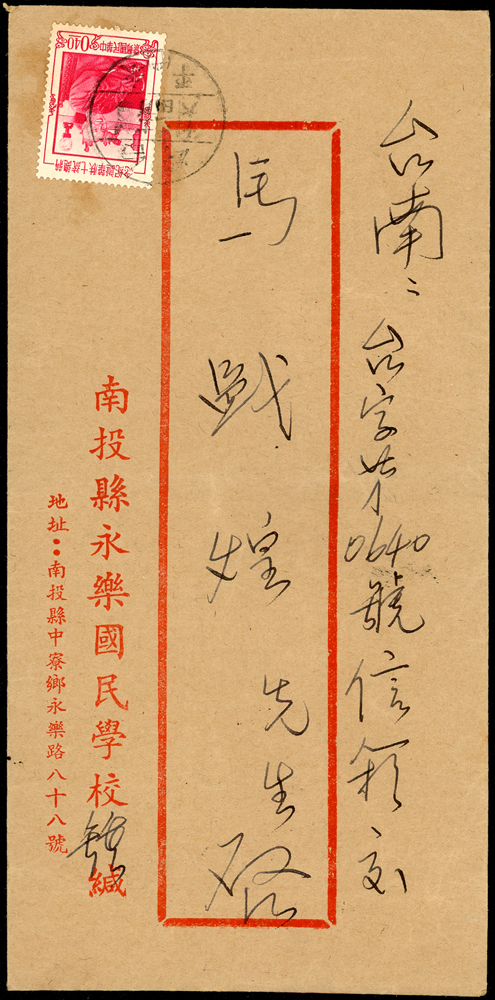 台南
台字
0640號信箱交
馬
煌先生啟
南投縣永樂國民學校
緘
地址：南投縣中寮鄉永樂路八十八號
中華民國郵票
0.40
蔣總統七秩華誕紀念